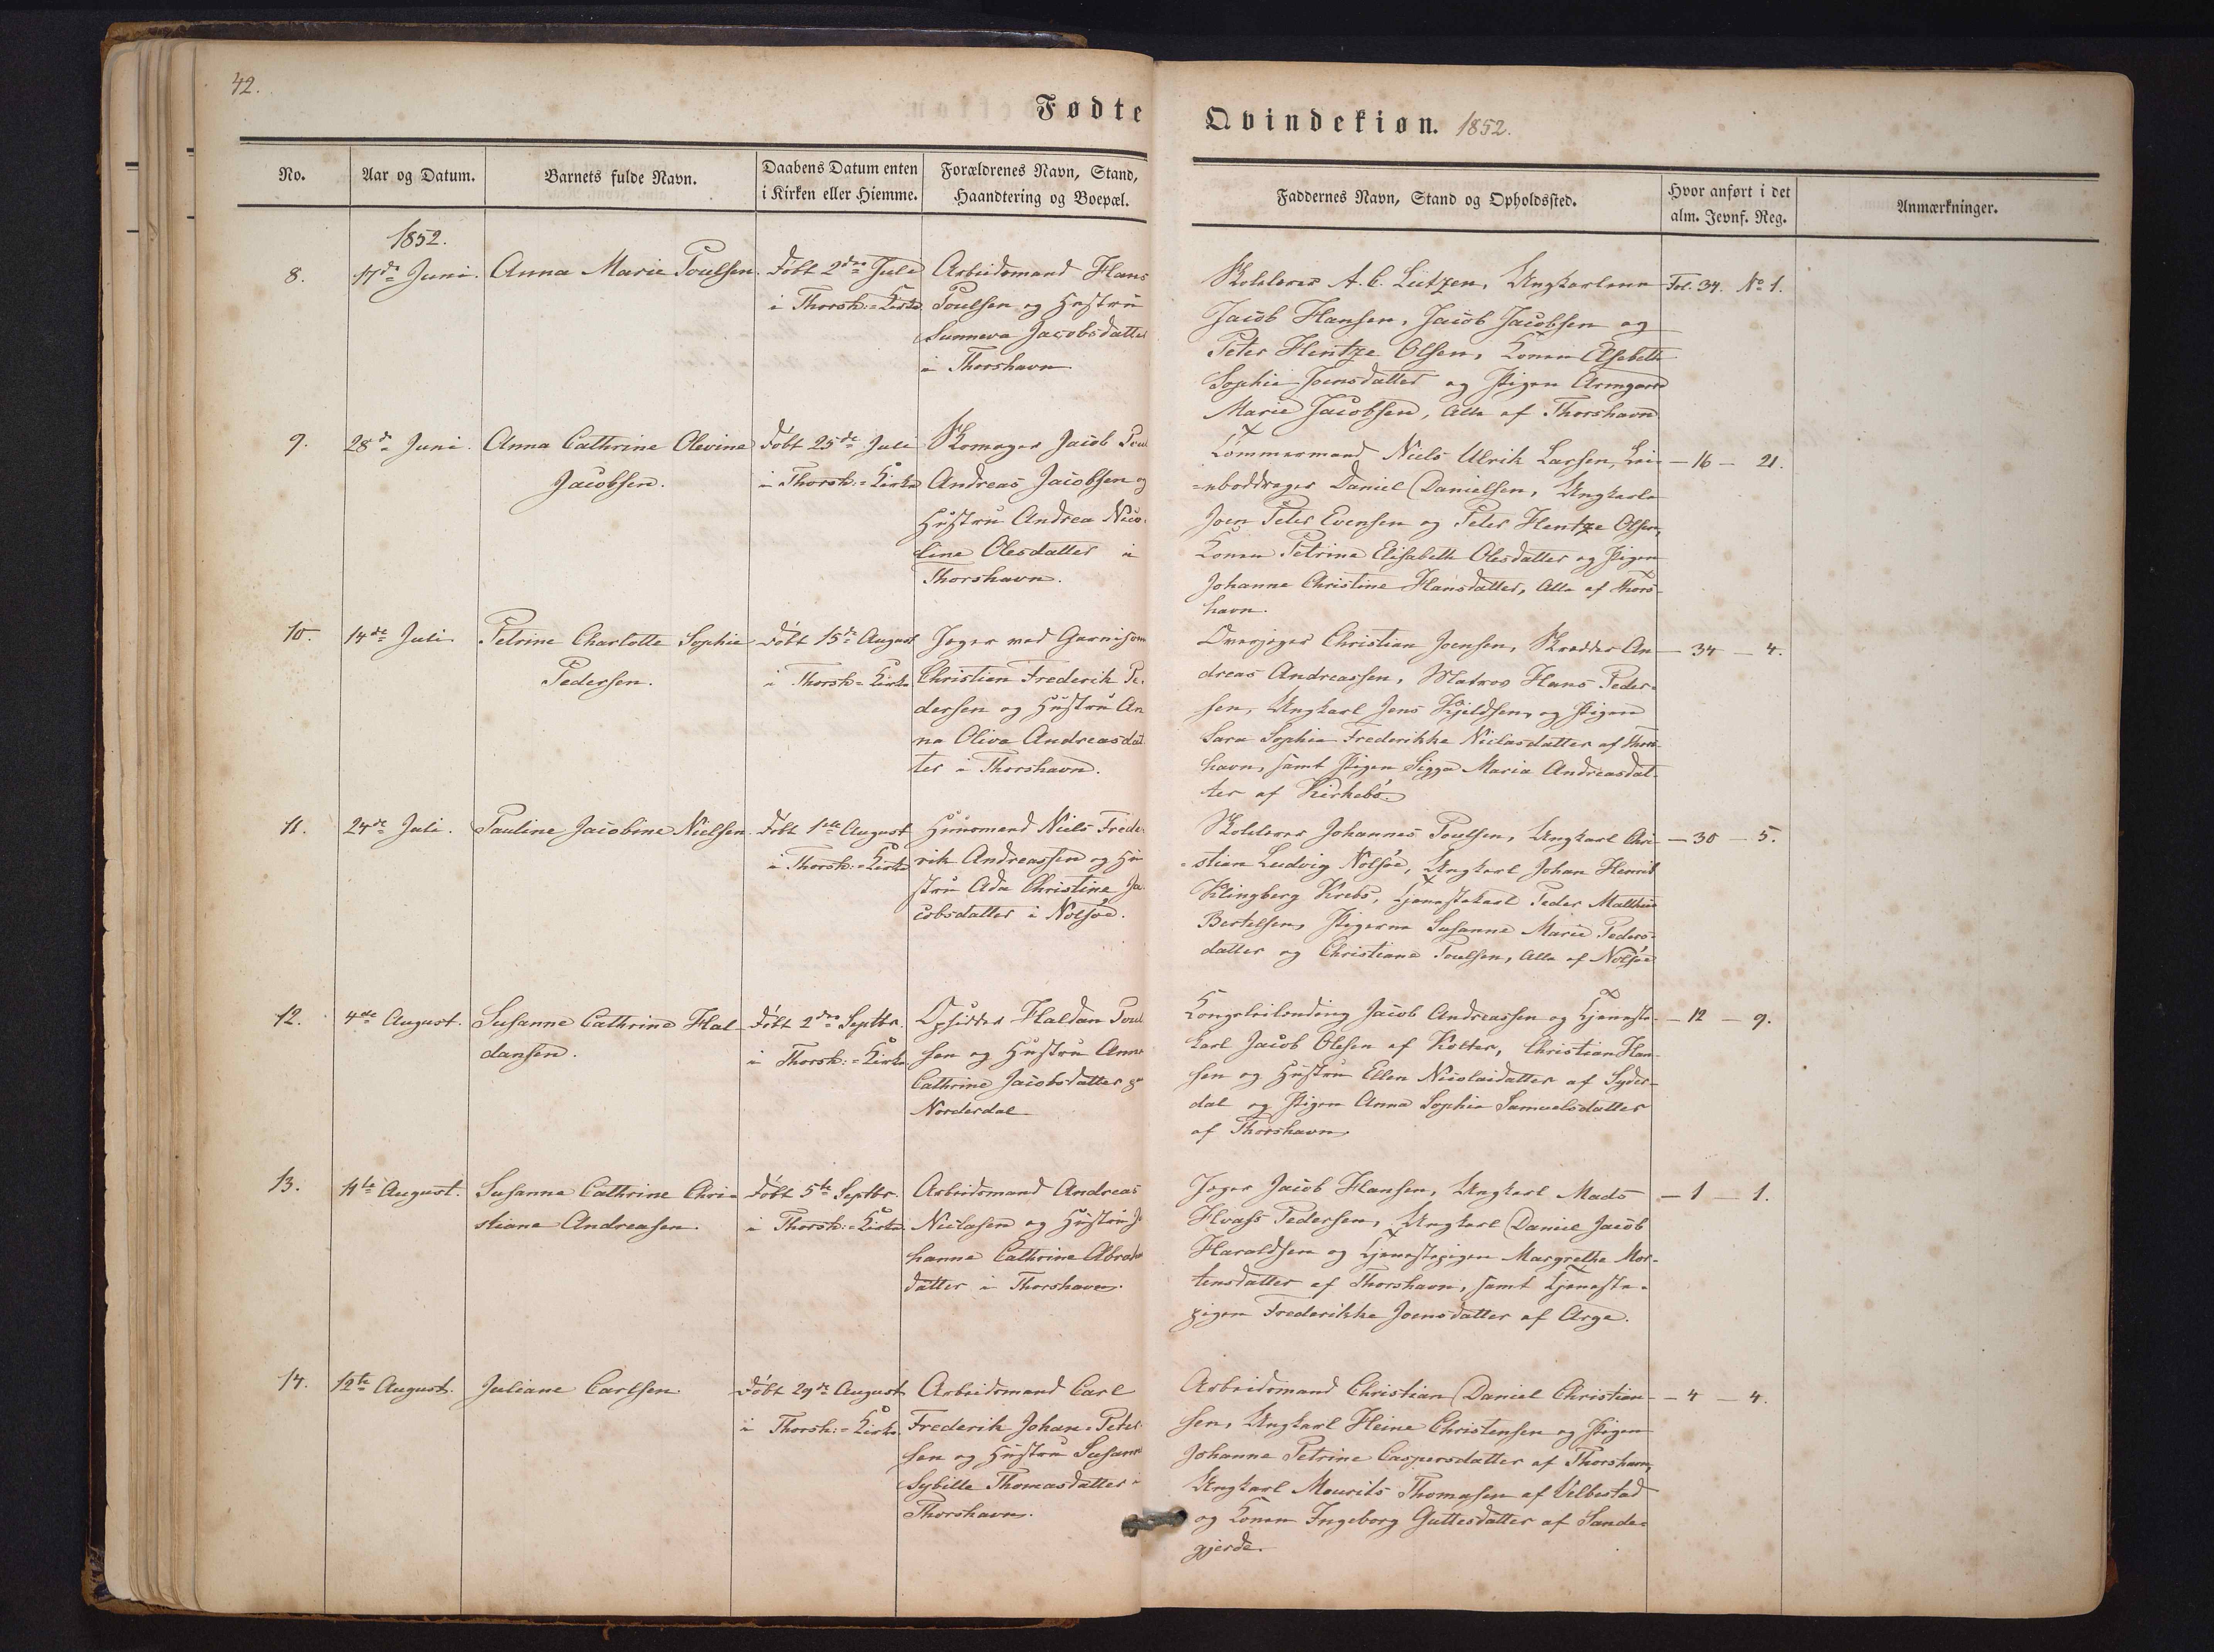 42.
Fødte
Qvindekiøn. 1852.
No.
Aar og Datum.
Barnets fulde Navn.
Daabens Datum enten
i Kirken eller Hiemme.
Forældrenes Navn, Stand,
Haandtering og Boepæl.
Faddernes Navn, Stand og Opholdssted.
Hvor anført i det
alm. Jevnf. Reg.
Anmærkninger.
1852.
8.
17de Juni.
Anna Marie Poulsen.
Døbt 2den Juli
i Thorsh:=Kirke
Arbeidsmand Hans
Poulsen og Hustru
Sunneva Jacobsdatter
i Thorshavn.
A. C. Lützen, Ungkarlene
Jacob Hansen, Jacob Jacobsen og
Peter Hentze Olsen, Konen Elsebeth
Sophie Joensdatter og Pigen Armgard
Marie Jacobsen, Alle af Thorshavn
Fol. 34. No 1.
9.
28de Juni.
Anna Cathrine Olevine
Jacobsen.
Døbt 25de Juli
i Thorsh:=Kirke
Skomager Jacob Poul
Andreas Jacobsen og
Hustru Andrea Nico-
line Olesdatter i
Thorshavn.
Tømmermand Niels Ulrik Larsen,
Daniel Danielsen, Ungkarle
Joen Peter Evensen og Peter Hentze Olsen,
Konen Petrine Elisabeth Olesdatter og Pigen
Johanne Christine Hansdatter, Alle af Thors-
havn.
— 16 — 21.
10.
14de Juli.
Petrine Charlotte Sophie
Pedersen.
Døbt 15de August
i Thorsh=Kirke
Jæger ved Garnisonen
Christian Frederik Pe-
dersen og Hustru An
na Oliva Andreasdat
ter i Thorshavn.
Overjæger Christian Joensen, Skrædder An
dreas Andreassen, Matros Hans Peder-
sen, Ungkarl Jens Kjeldsen, og Pigen
Sara Sophie Frederikke Niclasdatter af Thors-
havn, samt Pigen Sigga Maria Andreasdat-
ter af Kirkebø.
— 34 — 4.
11.
24de Juli.
Pauline Jacobine Nielsen.
Døbt 1ste August
i Thorsh:=Kirke
Huusmand Niels Frede-
rik Andreassen og Hu
stru Ada Christine Ja-
cobsdatter i Nolsøe.
Johannes Poulsen, Ungkarl Chri-
stian Ludvig Nolsøe, Ungkarl Johan Henrik
Klingberg Krebs, Tjenestekarl Peder Matthias
Bertelsen, Pigerne Susanne Marie Peders-
datter og Christiane Poulsen, Alle af Nolsøe
— 30 — 5.
12.
4de August.
Susanne Cathrine Hal-
dansen.
Døbt 2den Septbr.
i Thorsh:=Kirke
Opsidder Haldan Poul
sen og Hustru Anne
Cathrine Jacobsdatter paa
Norderdal
Kongsleilending Jacob Andreassen og Tjeneste-
karl Jacob Olesen af Kolter, Christian Han-
sen og Hustru Ellen Nicolaidatter af Syder-
dal og Pigen Anna Sophie Samuelsdatter
af Thorshavn.
— 12 — 9.
13.
11te August.
Susanne Cathrine Chri-
stiane Andreasen.
Døbt 5te Septbr.
i Thorsh:=Kirke.
Arbeidsmand Andreas
Niclasen og Hustru Jo
hanne Cathrine Abraha
datter i Thorshavn.
Jæger Jacob Hansen, Ungkarl Mads
Hvass Pedersen, Ungkarl Daniel Jacob
Haraldsen og Tjenestepigen Margrethe Mor-
tensdatter af Thorshavn, samt Tjeneste-
pigen Frederikke Joensdatter af Arge.
— 1 — 1.
14.
12te August.
Juliane Carlsen
Døbt 29de August
i Thorsh:=Kirke.
Arbeidsmand Carl
Frederik Johan Peter
sen og Hustru Susanne
Sybille Thomasdatter i
Thorshavn.
Arbeidsmand Christian Daniel Christian-
sen, Ungkarl Heine Christensen og Pigen
Johanne Petrine Caspersdatter af Thorshavn,
Ungkarl Mourits Thomasen af Velbestad
og Konen Ingeborg Guttesdatter af Sande-
gjerde.
— 4 — 4.